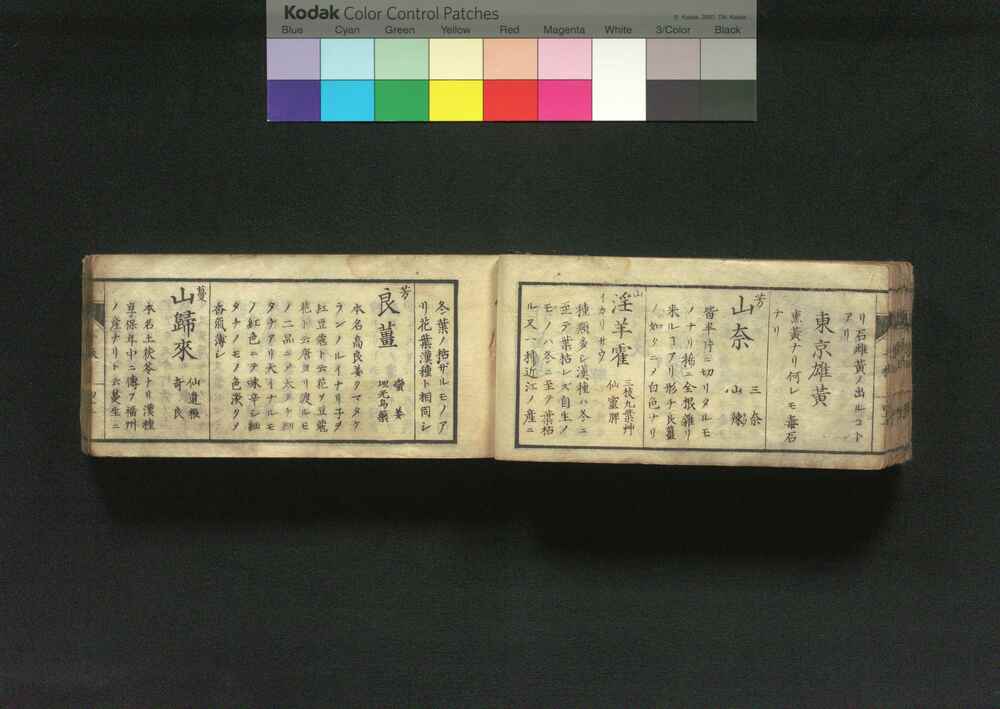 Kodak Color Control Patches
Blue Cyan Green Yellow Red Magenta White 3/Color Black
リ石雌黄ノ出ルコト
アリ
東京雄黄
薫黄ナリ何レモ毒石
ナリ
芳
山奈
三奈
山辣
皆半片ニ切リタルモ
ノナリ稀ニ全根雜リ
来ルコアリ形チ良薑
ノ如クニメ白色ナリ
山
淫羊霍
三枝九葉艸
仙霊脾
イカリサウ
種類多シ漢種ハ冬ニ
至テ葉枯レズ自生ノ
モノハ冬ニ至テ葉枯
ル又一種近江ノ産ニ
冬葉ノ枯ザルモノア
リ花葉漢種ト相同シ
芳
良薑
蠻姜
地光烏藥
本名高良姜クマタケ
ランノルイナリ子ヲ
紅豆蔲ト云花ヲ豆蔲
花ト云唐ヨリ渡ルモ
ノ二品ニメ大タチ小
タチアリ大イナルモ
ノ紅色ニテ味辛シ細
タチノモノ色淡クメ
香氣薄シ
蔓
山歸來
仙遺粮
奇良
本名土茯苓ト云漢種
享保年中ニ傳フ福州
ノ産ナリト云蔓生ニ